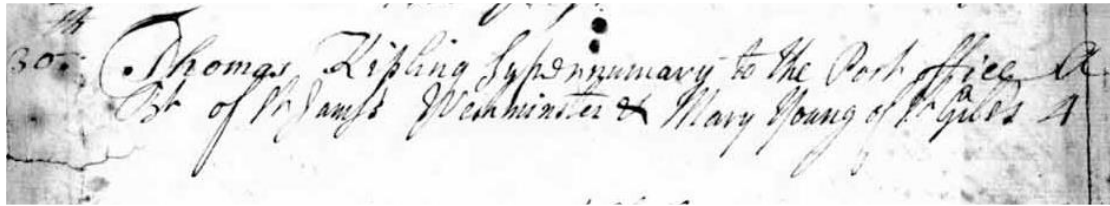 30th Thomas Kipling Sypernumary to the Post office A
Br of St James's Westminster & Mary Young of St Giles 4